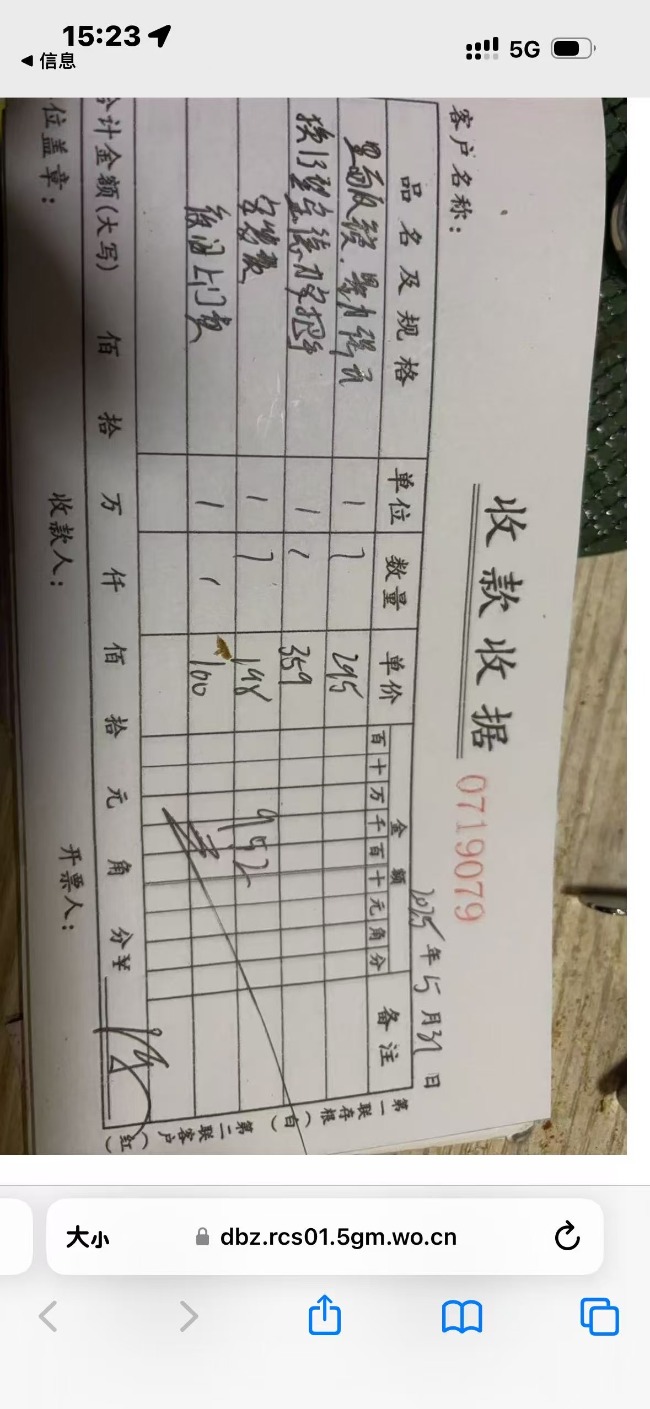 15:23
5G
信息
收款收据
0719079
客户名称：
2025年5月31日
品名及规格 单位 数量 单价 金额 备注
百十万千百十元角分
里面反锁. 1 1 295
1 1 359
安装费 1 1 198 952
夜间上门费 1 1 100
合计金额(大写) 佰 拾 万 仟 佰 拾 元 角 分 ¥
位盖章： 收款人： 开票人：
第一联存根（白） 第二联客户（红）
大小 dbz.rcs01.5gm.wo.cn